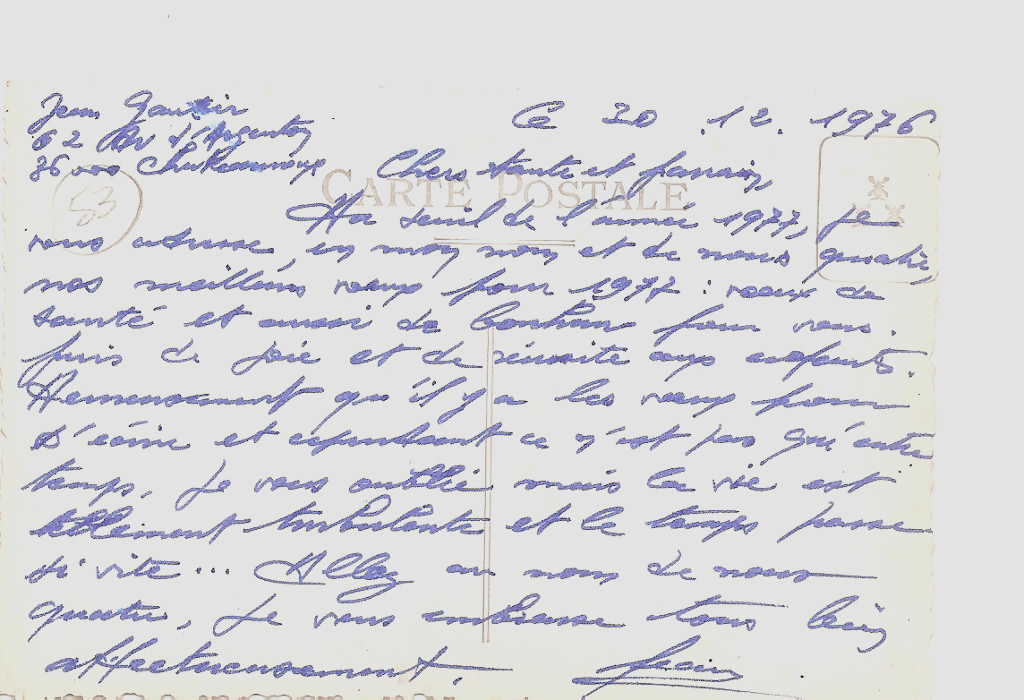 Jean Gautier
62 Av d'Argenton
36000 Chateauroux
Ce 20.12.1976
53
CARTE POSTALE
Chers tante et parrain,
Au seuil de l'année 1977, je
vous adresse, en mon nom et de nous quatre,
nos meilleurs vœux pour 1977 : vœux de
santé et aussi de bonheur pour vous.
puis de joie et de réussite aux enfants.
Heureusement qu'il y a les vœux pour
s'écrire et cependant ce n'est pas qu'entre
temps, je vous oublie mais la vie est
tellement turbulente et le temps passe
si vite ... Allez au nom de nous
quatre, je vous embrasse tous bien
affectueusement.
Jean